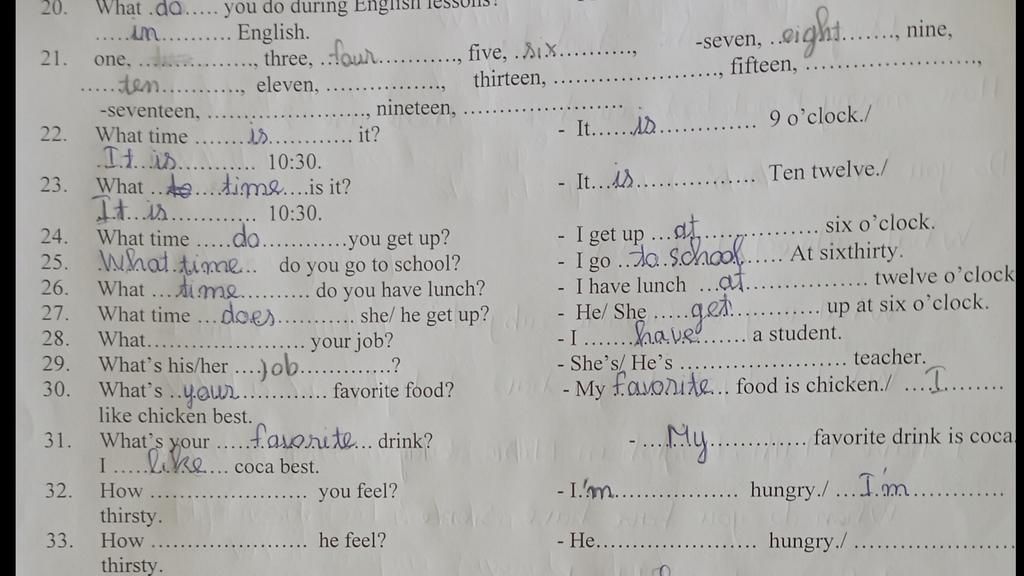 20. What .do..... you do during English lessons?
.....in.......... English.
21. one, ............, three, ..four............, five, ..six..........., -seven, ..eight......., nine,
.....ten............, eleven, ................, thirteen, ......................, fifteen, .......................,
-seventeen, ....................., nineteen, .....................
22. What time ........is............ it? - It.....is............. 9 o'clock./
.It..is............ 10:30.
23. What ..to....time....is it? - It...is................ Ten twelve./
It..is............ 10:30.
24. What time .....do............you get up? - I get up ...at................ six o'clock.
25. .What.time... do you go to school? - I go ..to.school...... At sixthirty.
26. What ...time.......... do you have lunch? - I have lunch ...at................ twelve o'clock
27. What time ...does............ she/ he get up? - He/ She .....get............ up at six o'clock.
28. What...................... your job? - I .......have....... a student.
29. What's his/her ....job.............? - She's/ He's ....................... teacher.
30. What's ..your............ favorite food? - My favorite... food is chicken./ ...I........
like chicken best.
31. What's your .....favorite... drink? -....My............. favorite drink is coca
I .....like.... coca best.
32. How ...................... you feel? - I.'m................. hungry./ ...I'm.............
thirsty.
33. How ...................... he feel? - He...................... hungry./ .......................
thirsty.